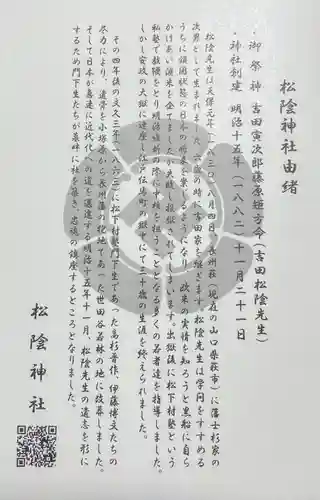 松陰神社由緒
・御祭神 吉田寅次郎藤原矩方命(吉田松陰先生)
・神社創建 明治十五年(一八八二)十一月二十一日
松陰先生は天保元年(一八三〇)八月四日、長州萩(現在の山口県萩市)に藩士杉家の
次男として生まれました。六歳の時に吉田家を嗣ぎます。松陰先生は学問をすすめる
うちに鎖国状態の日本の将来を案じるようになり、欧米の実情を知ろうと黒船に自ら
かけあい渡米を企てましたが失敗し投獄されてしまいます。出獄後に松下村塾という
私塾で教鞭をとり明治維新の際に中核を担うこととなる多くの若者達を指導しました。
しかし安政の大獄に連座し江戸伝馬町の獄中にて三十歳の生涯を終えられました。
その四年後の文久三年(一八六三)に松下村塾門下生であった高杉晋作、伊藤博文たちの
尽力により、遺骨を小塚原から長州藩の地であった世田谷若林の地に改葬しました。
そして日本が急速に近代化への道を邁進する明治十五年十一月、松陰先生の遺志を形に
するため門下生たちが墓畔に社を築き、忠魂の鎮座するところとなりました。
松陰神社